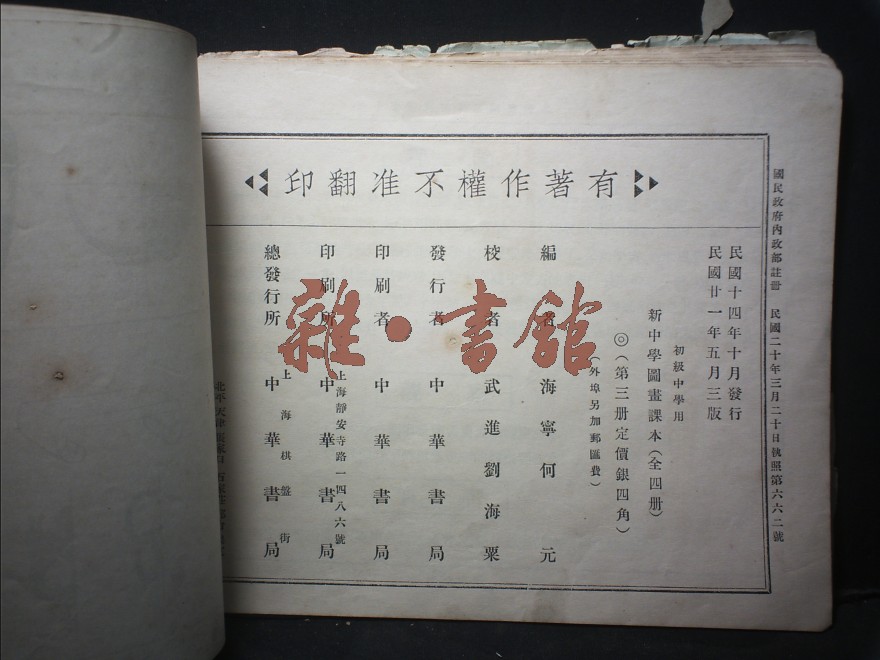 有著作權不准翻印
國民政府內政部註冊 民國二十年三月二十日執照第六六二號
民國十四年十月發行
民國廿一年五月三版
初級中學用
新中學圖畫課本(全四册)
◎(第三册定價銀四角)
(外埠另加郵匯費)
編者 海寧何元
校者 武進劉海粟
發行者 中華書局
印刷者 中華書局
上海靜安寺路一四八六號
印刷所 中華書局
上海棋盤街
總發行所 中華書局
北平天津
雜·書館